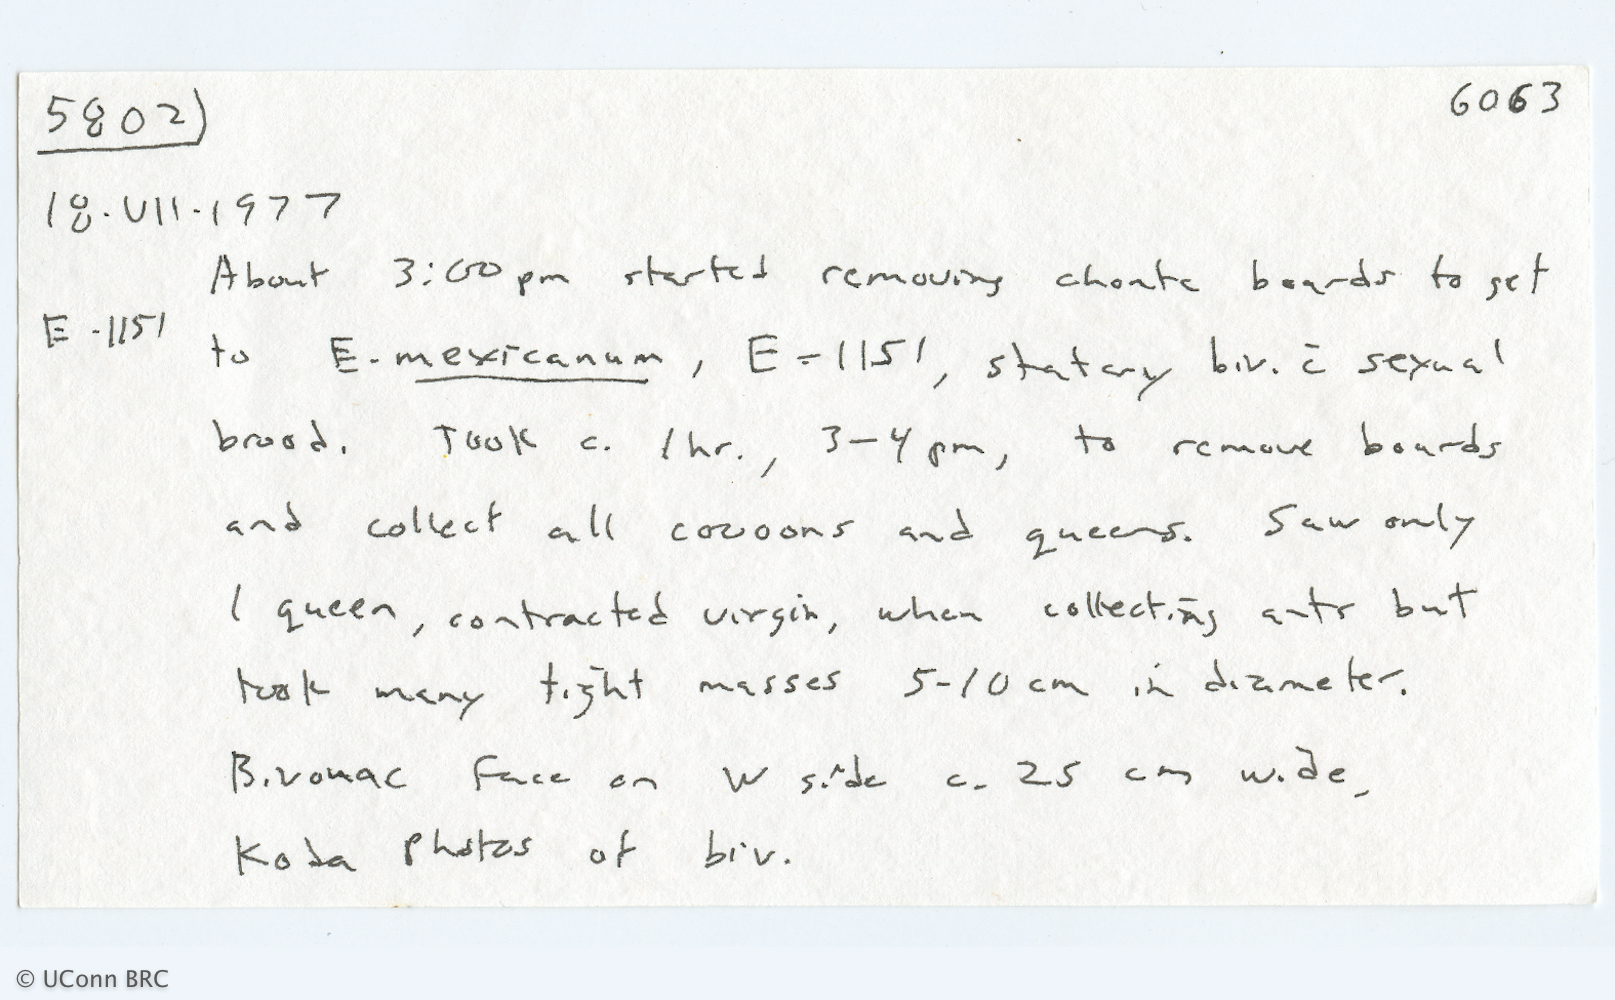 5802) 6063
18.VII.1977
About 3:00 pm started removing chonta boards to get
E-1151 to E. mexicanum, E-1151, statary biv. c̄ sexual
brood. Took c. 1hr., 3-4 pm, to remove boards
and collect all cocoons and queens. Saw only
1 queen, contracted virgin, when collecting ants but
took many tight masses 5-10 cm in diameter.
Bivouac face on W side c. 25 cm wide.
Koda photos of biv.
© UConn BRC